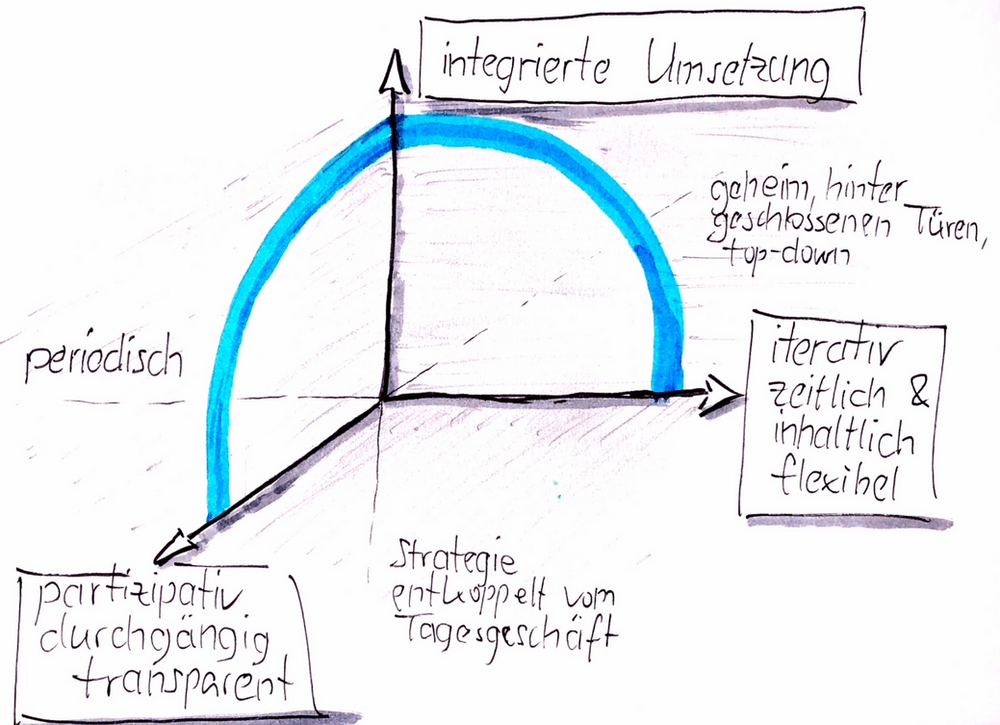 integrierte Umsetzung
geheim, hinter
geschlossenen Türen,
top-down
periodisch
iterativ
zeitlich &
inhaltlich
flexibel
Strategie
entkoppelt vom
Tagesgeschäft
partizipativ
durchgängig
transparent